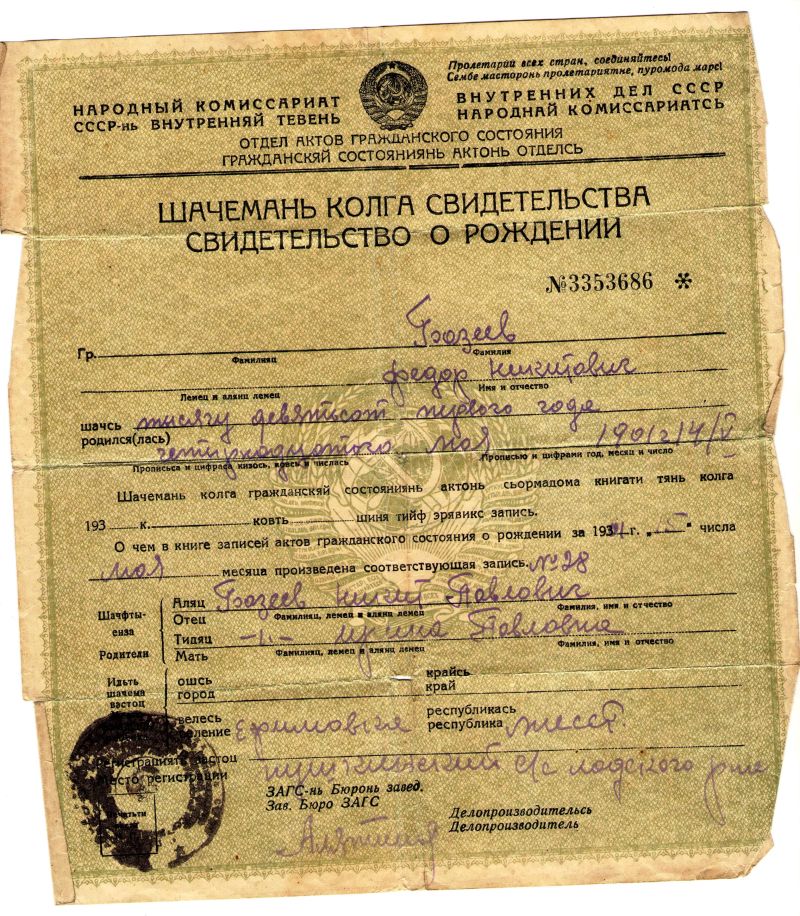 Пролетарии всех стран, соединяйтесь!
Сембе масторонь пролетариятне, пуромода марс!
НАРОДНЫЙ КОМИССАРИАТ ВНУТРЕННИХ ДЕЛ СССР
СССР-нь ВНУТРЕННЯЙ ТЕВЕНЬ НАРОДНАЙ КОМИССАРИАТСЬ
ОТДЕЛ АКТОВ ГРАЖДАНСКОГО СОСТОЯНИЯ
ГРАЖДАНСКЯЙ СОСТОЯНИЯНЬ АКТОНЬ ОТДЕЛСЬ
ШАЧЕМАНЬ КОЛГА СВИДЕТЕЛЬСТВА
СВИДЕТЕЛЬСТВО О РОЖДЕНИИ
№3353686 *
Гр. Бозеев
Фамилияц Фамилия
федор никитович
Лемец и алянц лемец Имя и отчество
шачсь тисячу девятсот первого года
родился(лась) четырнадцатого мая 1901г 14/V
Прописьса и цифраса кизось, ковсь и числась Прописью и цифрами год, месяц и число
Шачемань колга гражданскяй состояниянь актонь сьормадома книгати тянь колга
193 к. ковть шиня тийф эрявикс запись.
О чем в книге записей актов гражданского состояния о рождении за 193 г. „ “ числа
мая месяца произведена соответствующая запись. №28
Шачфты- Аляц Бозеев никит Павлович
енза Отец Фамилияц, лемец и алянц лемец Фамилия, имя и отчество
Тидяц -//- ирина Павловна
Родители Мать Фамилияц, лемец и алянц лемец Фамилия, имя и отчество
Идьть ошсь крайсь
шачема город край
вастоц
велесь республикась
еление республика
Регистрациять вастоц пушкинский с/с ладского р-на
место регистрации
ЗАГС-нь Бюронь завед.
Зав. Бюро ЗАГС
Делопроизводительсь
Делопроизводитель